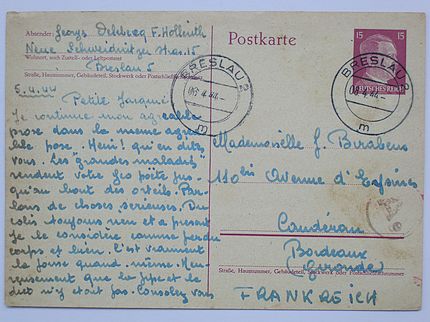 Absender: Georges Delsberg F. Hollmuth
Neue Schweidnitzer Strass. 15
Wohnort, auch Zustell- oder Leitpostamt
Breslau 5
Straße, Hausnummer, Gebäudeteil, Stockwerk oder Postschließfachnummer
Postkarte
15 15
DEUTSCHES REICH
BRESLAU 2
4.44
m
BRESLAU 2
4.44
m
5.4.44
Petite Jacqui
Je continue mon agréable
prose dans la même agréa
ble pose. Hein! qui en dites
vous. Les grandes maladies
rendent votre Jo poète jus-
qu'au bout des orteils. Par-
lons de choses sérieuses. Du
colis toujours rien et a présent
je le considère comme perdu
corps et bien. C'est vraiment
la poisse quand même. Heu-
reusement que la pipe et le
n'y était pas. Consolez vous
Mademoiselle J. Barabens
110bis Avenue d'Eysines
Caudéran
Bordeaux
(Gironde)
Straße, Hausnummer, Gebäudeteil, Stockwerk oder Postschließfachnummer
FRANKREICH